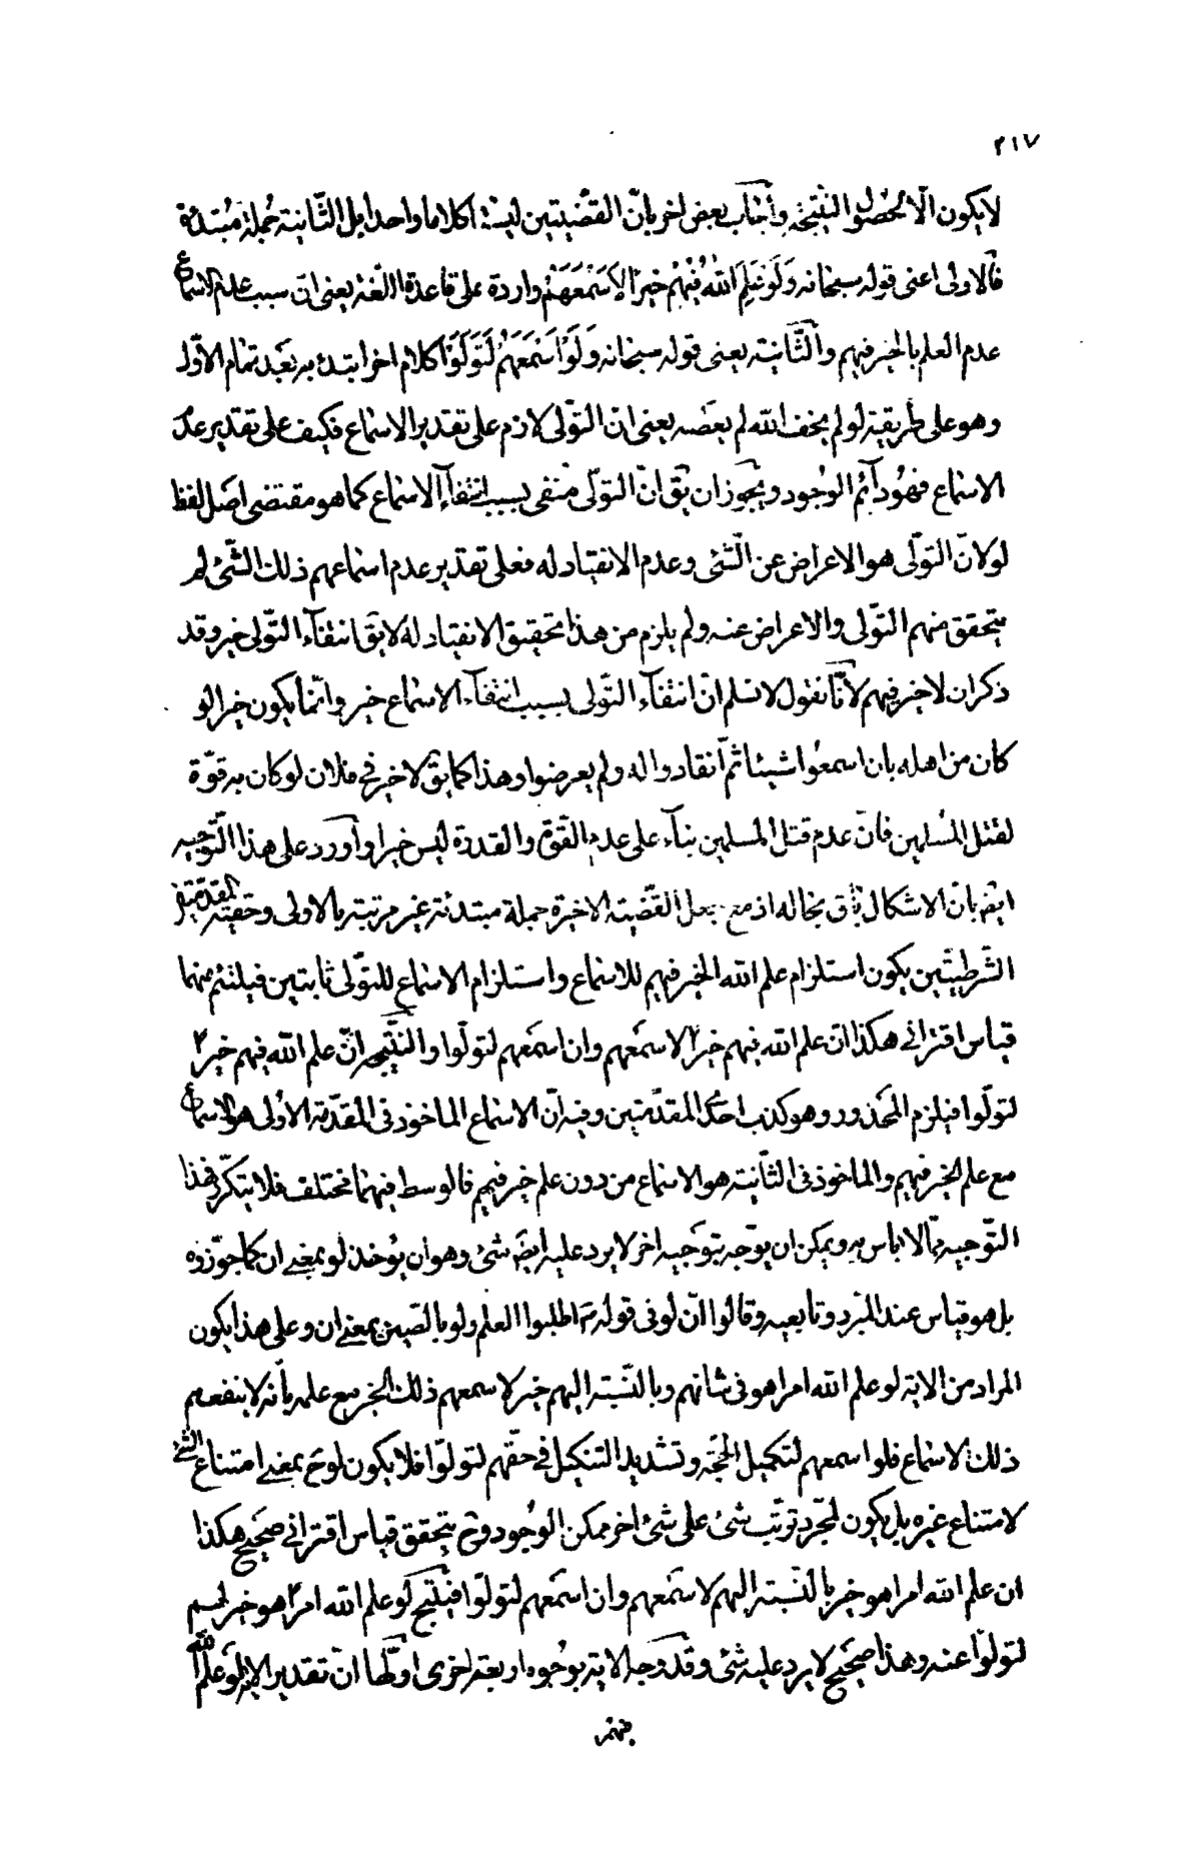 ٢١٧
لا يكون الّا لحصول النّتيجة وأجاب بعض اخر بانّ القضيتين ليستا كلاما واحدا بل الثّانية جملة مبتدئة
فالاولى اعنى قوله سبحانه وَلَو عَلِمَ اللهُ فيهِمْ خَيرًا لَاَسْمَعَهُمْ واردة على قاعدة اللّغة يعنى انّ سبب عدم الاسماع
عدم العلم بالخير فيهم والثّانية يعنى قوله سبحانه وَلَوْ اَسْمَعَهُمْ لَتَوَلَّوْا كلام اخر ابتدئ به بعد تمام الاوّل
وهو على طريقة لو لم يخف الله لم يعصه يعنى انّ التّولى لازم على تقدير الاسماع فكيف على تقدير عدم
الاسماع فهو دآئم الوجود ويجوز ان يق انّ التولّى منفى بسبب انتفآء الاسماع كما هو مقتضى اصل لفظ
لو لانّ التّولّى هو الاعراض عن الشّئ وعدم الانقياد له فعلى تقدير عدم اسماعهم ذلك الشّئ لم
يتحقق منهم التّولى والاعراض عنه ولم يلزم من هذا تحقيق الانقياد له لا يق انتفآء التّولى خير وقد
ذكر ان لا خير فيهم لأنّا نقول لا نسلم انّ انتفآء التّولى بسبب انتفآء الاسماع خير وانّما يكون خيرا لو
كان من اهله بان اسمعوا شيئا ثمّ انقادوا له ولم يعرضوا وهذا كما يق لا خير في فلان لو كان به قوّة
لقتل المسلمين فانّ عدم قتل المسلمين بنآء على عدم القوّة والقدرة ليس خيرا وأورد على هذا التّوجيه
ايضه بانّ الاشكال باق بحاله اذ مع جعل القضية الاخيرة جملة مبتدئة غير مرتبة بالاولى وحقيّة المقدّمتين
الشّرطيتين يكون استلزام علم الله الخير فيهم للاسماع واستلزام الاسماع للتولّى ثابتين فيلتئم منهما
قياس اقترانى هكذا ان علم الله فيهم خيرا لاسمعهم وان اسمعهم لتولّوا والنّتيجه ان علم الله فيهم خيرا
لتولّوا فيلزم المحذور وهو كذب احدى المقدّمتين وفيه انّ الاسماع الماخوذ فى المقدّمة الأولى هو الاسماع
مع علم الخير فيهم والماخوذ فى الثّانية هو الاسماع من دون علم خير فيهم فالوسط فيهما مختلف فلا يتكرّر فهذا
التّوجيه ممّا لا باس به ويمكن ان يوّجه بتوجيه اخر لا يرد عليه ايضه شئ وهو ان يؤخذ لو بمعنى ان كما جوّزوه
بل هو قياس عند المبرّد وتابعيه وقالوا انّ لو فى قوله ص اطلبوا العلم ولو بالصّين بمعنى ان وعلى هذا يكون
المراد من الاية لو علم الله امرا هو فى شانهم وبالنّسبة اليهم خير لاسمعهم ذلك الخير مع علمه بأنه لا ينفعهم
ذلك الاسماع فلو اسمعهم لتكميل الحجّة وتشديد التنكيل في حقّهم لتولّوا فلا يكون لو ح بمعنى امتناع الشّئ
لامتناع غيره بل يكون لمجّرد ترتّب شئ على شئ اخر ممكن الوجود وح يتحقق قياس اقترانى صحيح هكذا
ان علم الله امرا هو خير بالنّسبة اليهم لاسمعهم وان اسمعهم لتولّوا فينتج لو علم الله امرا هو خير لهم
لتولّوا عنه وهذا صحيح لا يرد عليه شئ وقد وجه الاية بوجوه اربعة اخرى اوّلها انّ تقدير الاية لو علم الله
فيهم